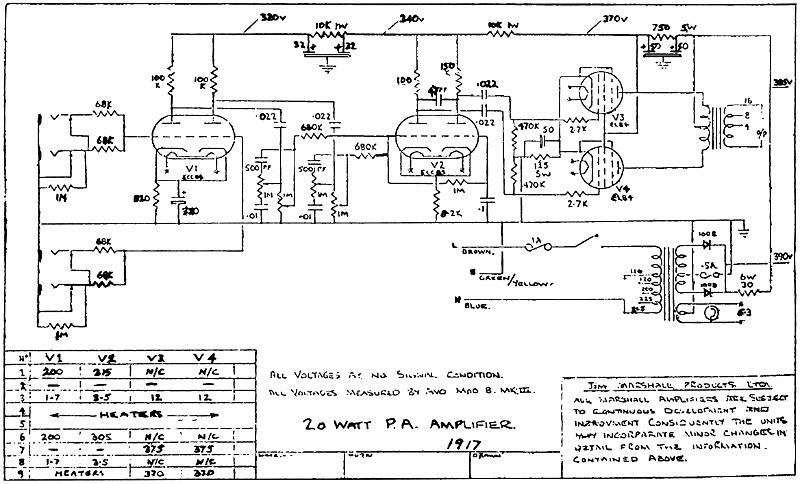 320v
340v
370v
10K 1W
10K 1W
750 5W
32 32
50 50
100 K
100 K
100
150
385v
68K
68K
.022
.022
.022
.022
47PF
680K
680K
470K
470K
50
115
5W
27K
2.7K
V3
EL84
V4
EL84
16
8
4
O/P
V1
ECC83
V2
ECC83
500 PF
500 PF
1M
1M
1M
1M
1M
.01
.01
820
8.2K
.1
1M
68K
68K
1M
L
BROWN.
1A
GREEN/YELLOW.
N
BLUE.
110
120
200
225
100B
.5A
100B
390v
6W
30
6.3
Nº V1 V2 V3 V4
1 200 215 N/C N/C
2 — — — —
3 1-7 3-5 12 12
4 HEATERS
5
6 200 305 N/C N/C
7 — — 375 375
8 1-7 3.5 N/C N/C
9 HEATERS 370 370
ALL VOLTAGES AT NO SIGNAL CONDITION.
ALL VOLTAGES MEASURED BY AVO MOD 8. MK III.
20 WATT P.A. AMPLIFIER.
1917
JIM MARSHALL PRODUCTS LTD.
ALL MARSHALL AMPLIFIERS ARE SUBJECT
TO CONTINUOUS DEVELOPMENT AND
IMPROVMENT CONSIQUENTLY THE UNITS
MAY INCORPARATE MINOR CHANGES IN
DETAIL FROM THE INFORMATION
CONTAINED ABOVE.